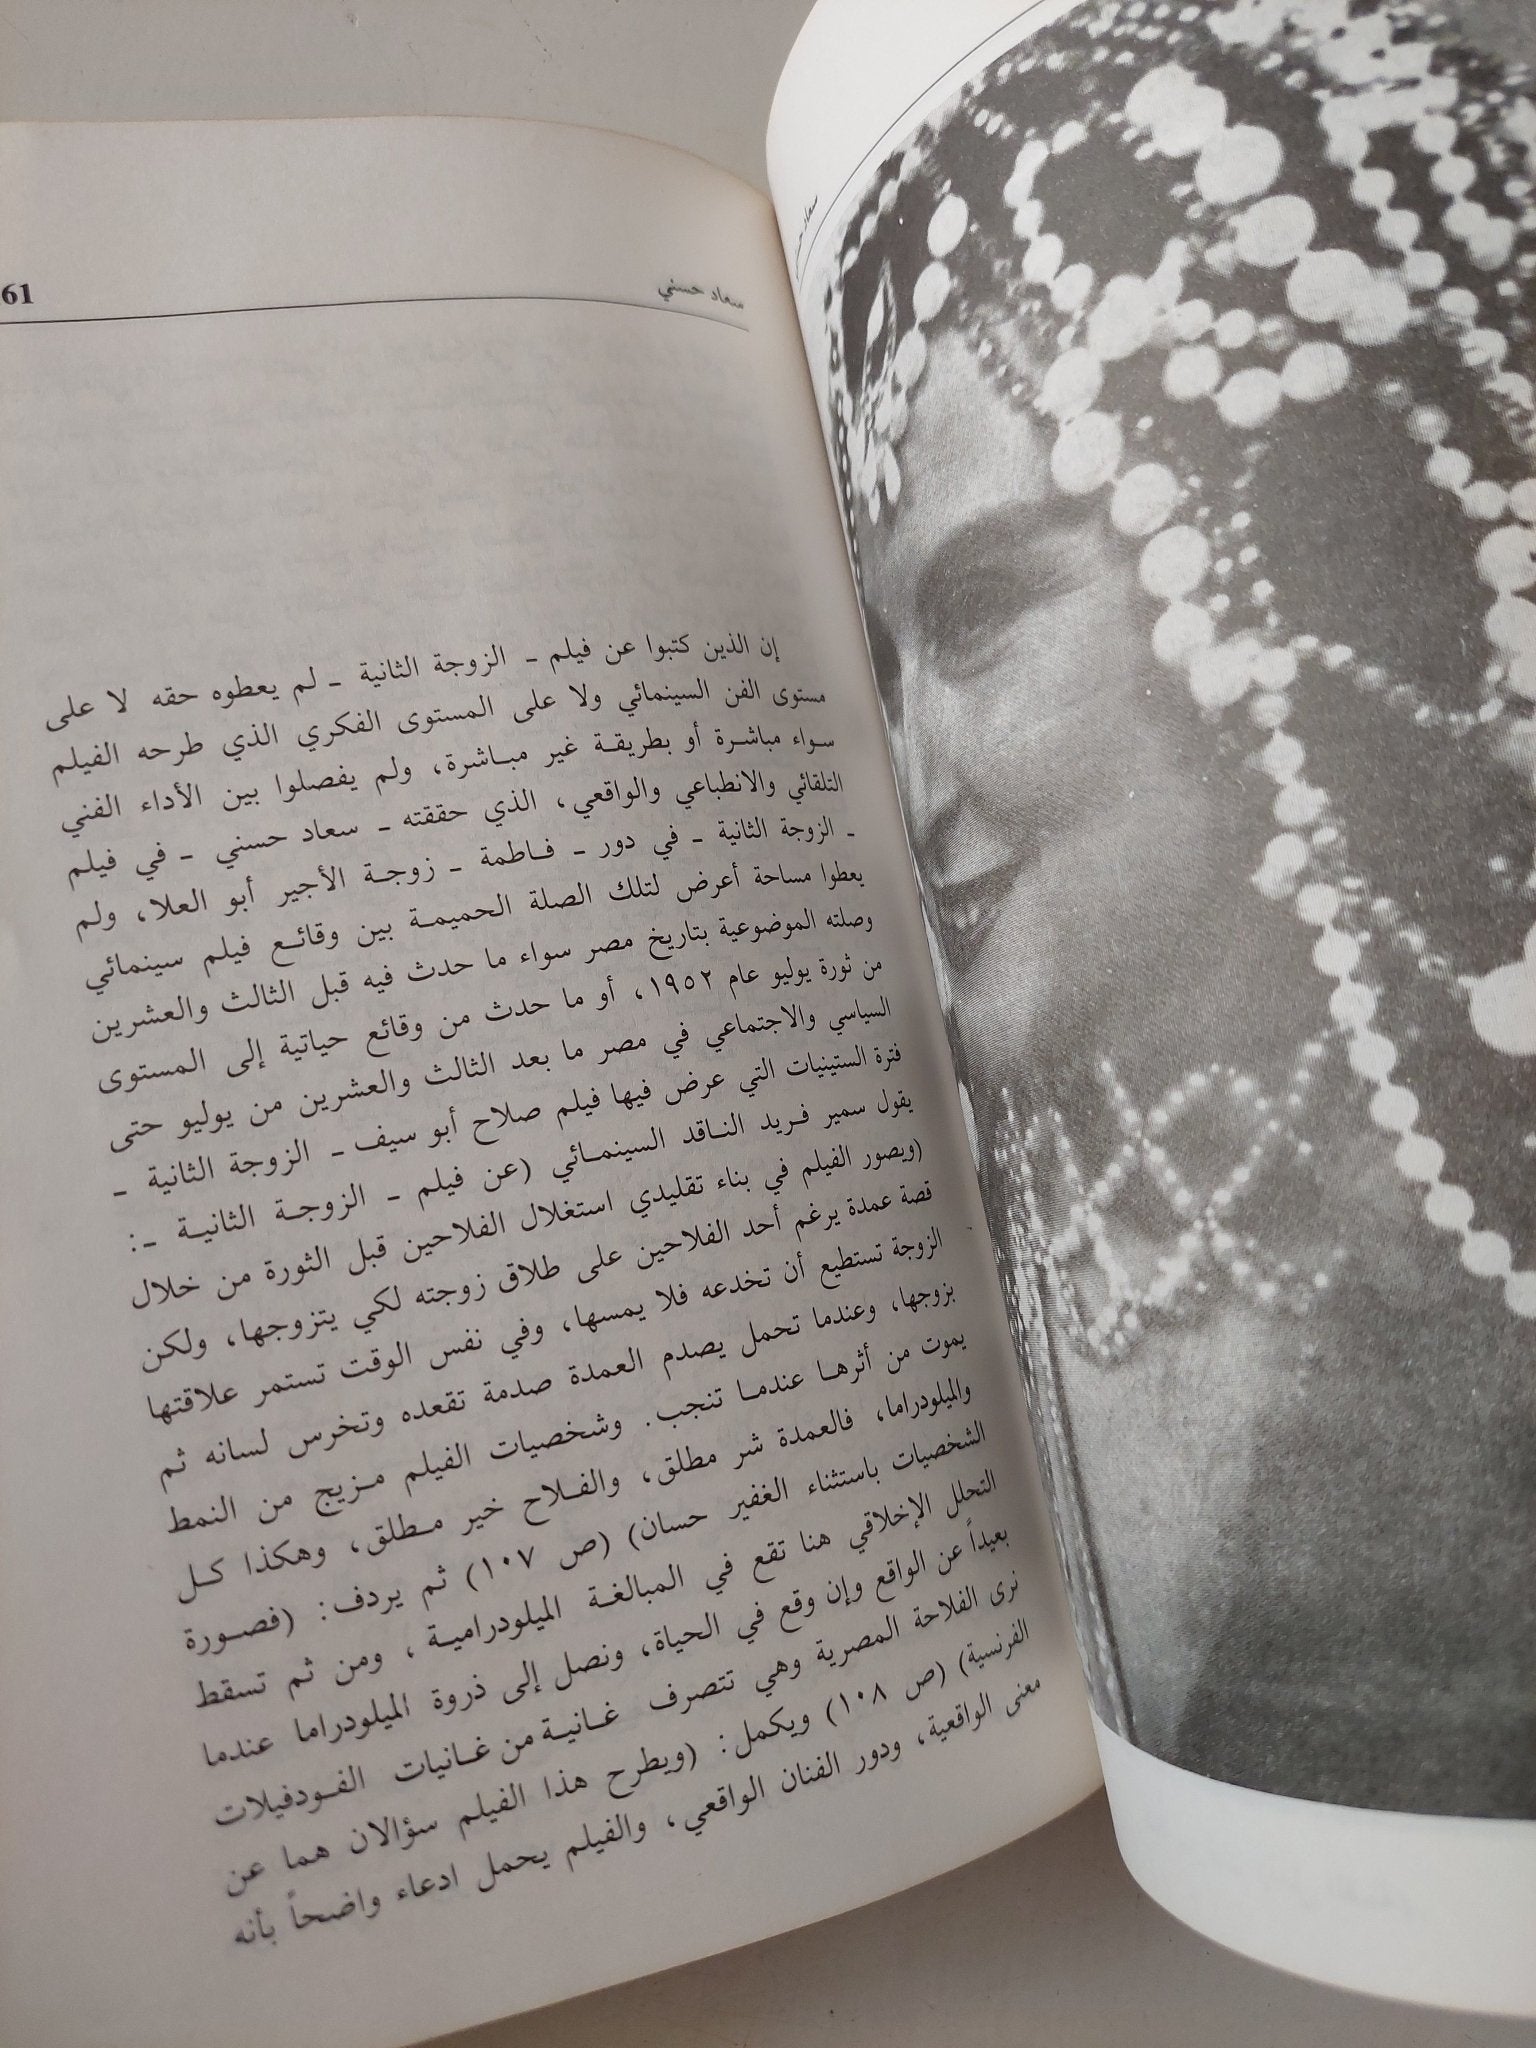 سعاد حسني
61
إن الذين كتبوا عن فيلم ـ الزوجة الثانية ـ لم يعطوه حقه لا على
مستوى الفن السينمائي ولا على المستوى الفكري الذي طرحه الفيلم
سواء مباشرة أو بطريقة غير مباشرة، ولم يفصلوا بين الأداء الفني
التلقائي والانطباعي والواقعي، الذي حققته ـ سعاد حسني ـ في فيلم
ـ الزوجة الثانية ـ في دور ـ فاطمة ـ زوجة الأجير أبو العلا، ولم
يعطوا مساحة أعرض لتلك الصلة الحميمة بين وقائع فيلم سينمائي
وصلته الموضوعية بتاريخ مصر سواء ما حدث فيه قبل الثالث والعشرين
من ثورة يوليو عام ١٩٥٢، أو ما حدث من وقائع حياتية إلى المستوى
السياسي والاجتماعي في مصر ما بعد الثالث والعشرين من يوليو حتى
فترة الستينيات التي عرض فيها فيلم صلاح أبو سيف ـ الزوجة الثانية ـ
يقول سمير فريد الناقد السينمائي (عن فيلم ـ الزوجة الثانية ـ:
(ويصور الفيلم في بناء تقليدي استغلال الفلاحين قبل الثورة من خلال
قصة عمدة يرغم أحد الفلاحين على طلاق زوجته لكي يتزوجها، ولكن
الزوجة تستطيع أن تخدعه فلا يمسها، وفي نفس الوقت تستمر علاقتها
بزوجها، وعندما تحمل يصدم العمدة صدمة تقعده وتخرس لسانه ثم
يموت من أثرها عندما تنجب. وشخصيات الفيلم مزيج من النمط
والميلودراما، فالعمدة شر مطلق، والفلاح خير مطلق، وهكذا كل
الشخصيات باستثناء الغفير حسان) (ص ١٠٧) ثم يردف: (فصورة
التحلل الإخلاقي هنا تقع في المبالغة الميلودرامية، ومن ثم تسقط
بعيداً عن الواقع وإن وقع في الحياة، ونصل إلى ذروة الميلودراما عندما
نرى الفلاحة المصرية وهي تتصرف غانية من غانيات الفودفيلات
الفرنسية) (ص ١٠٨) ويكمل: (ويطرح هذا الفيلم سؤالان هما عن
معنى الواقعية، ودور الفنان الواقعي، والفيلم يحمل ادعاء واضحاً بأنه